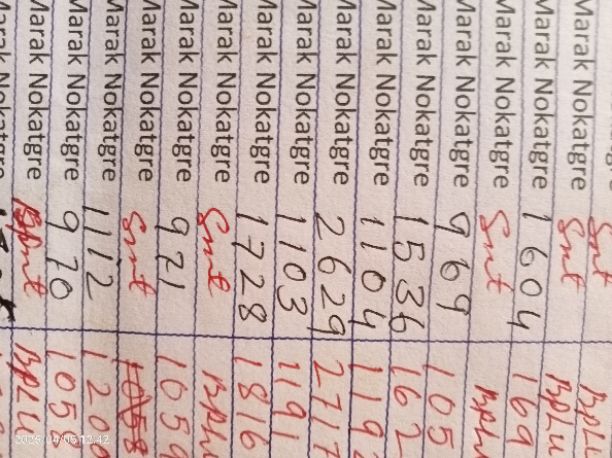 Smt BPLU
Marak Nokatgre Smt BPLU
Marak Nokatgre 1604 169
Marak Nokatgre Smt BPLU
Marak Nokatgre 969 105
Marak Nokatgre 1536 162
Marak Nokatgre 1104 119
Marak Nokatgre 2629 2717
Marak Nokatgre 1103 1191
Marak Nokatgre 1728 1816
Marak Nokatgre Smt BPLU
Marak Nokatgre 971 1059
Marak Nokatgre Smt
Marak Nokatgre 1112 120
Marak Nokatgre 970 105
Marak Nokatgre BPLU
2026/04/06 12:42